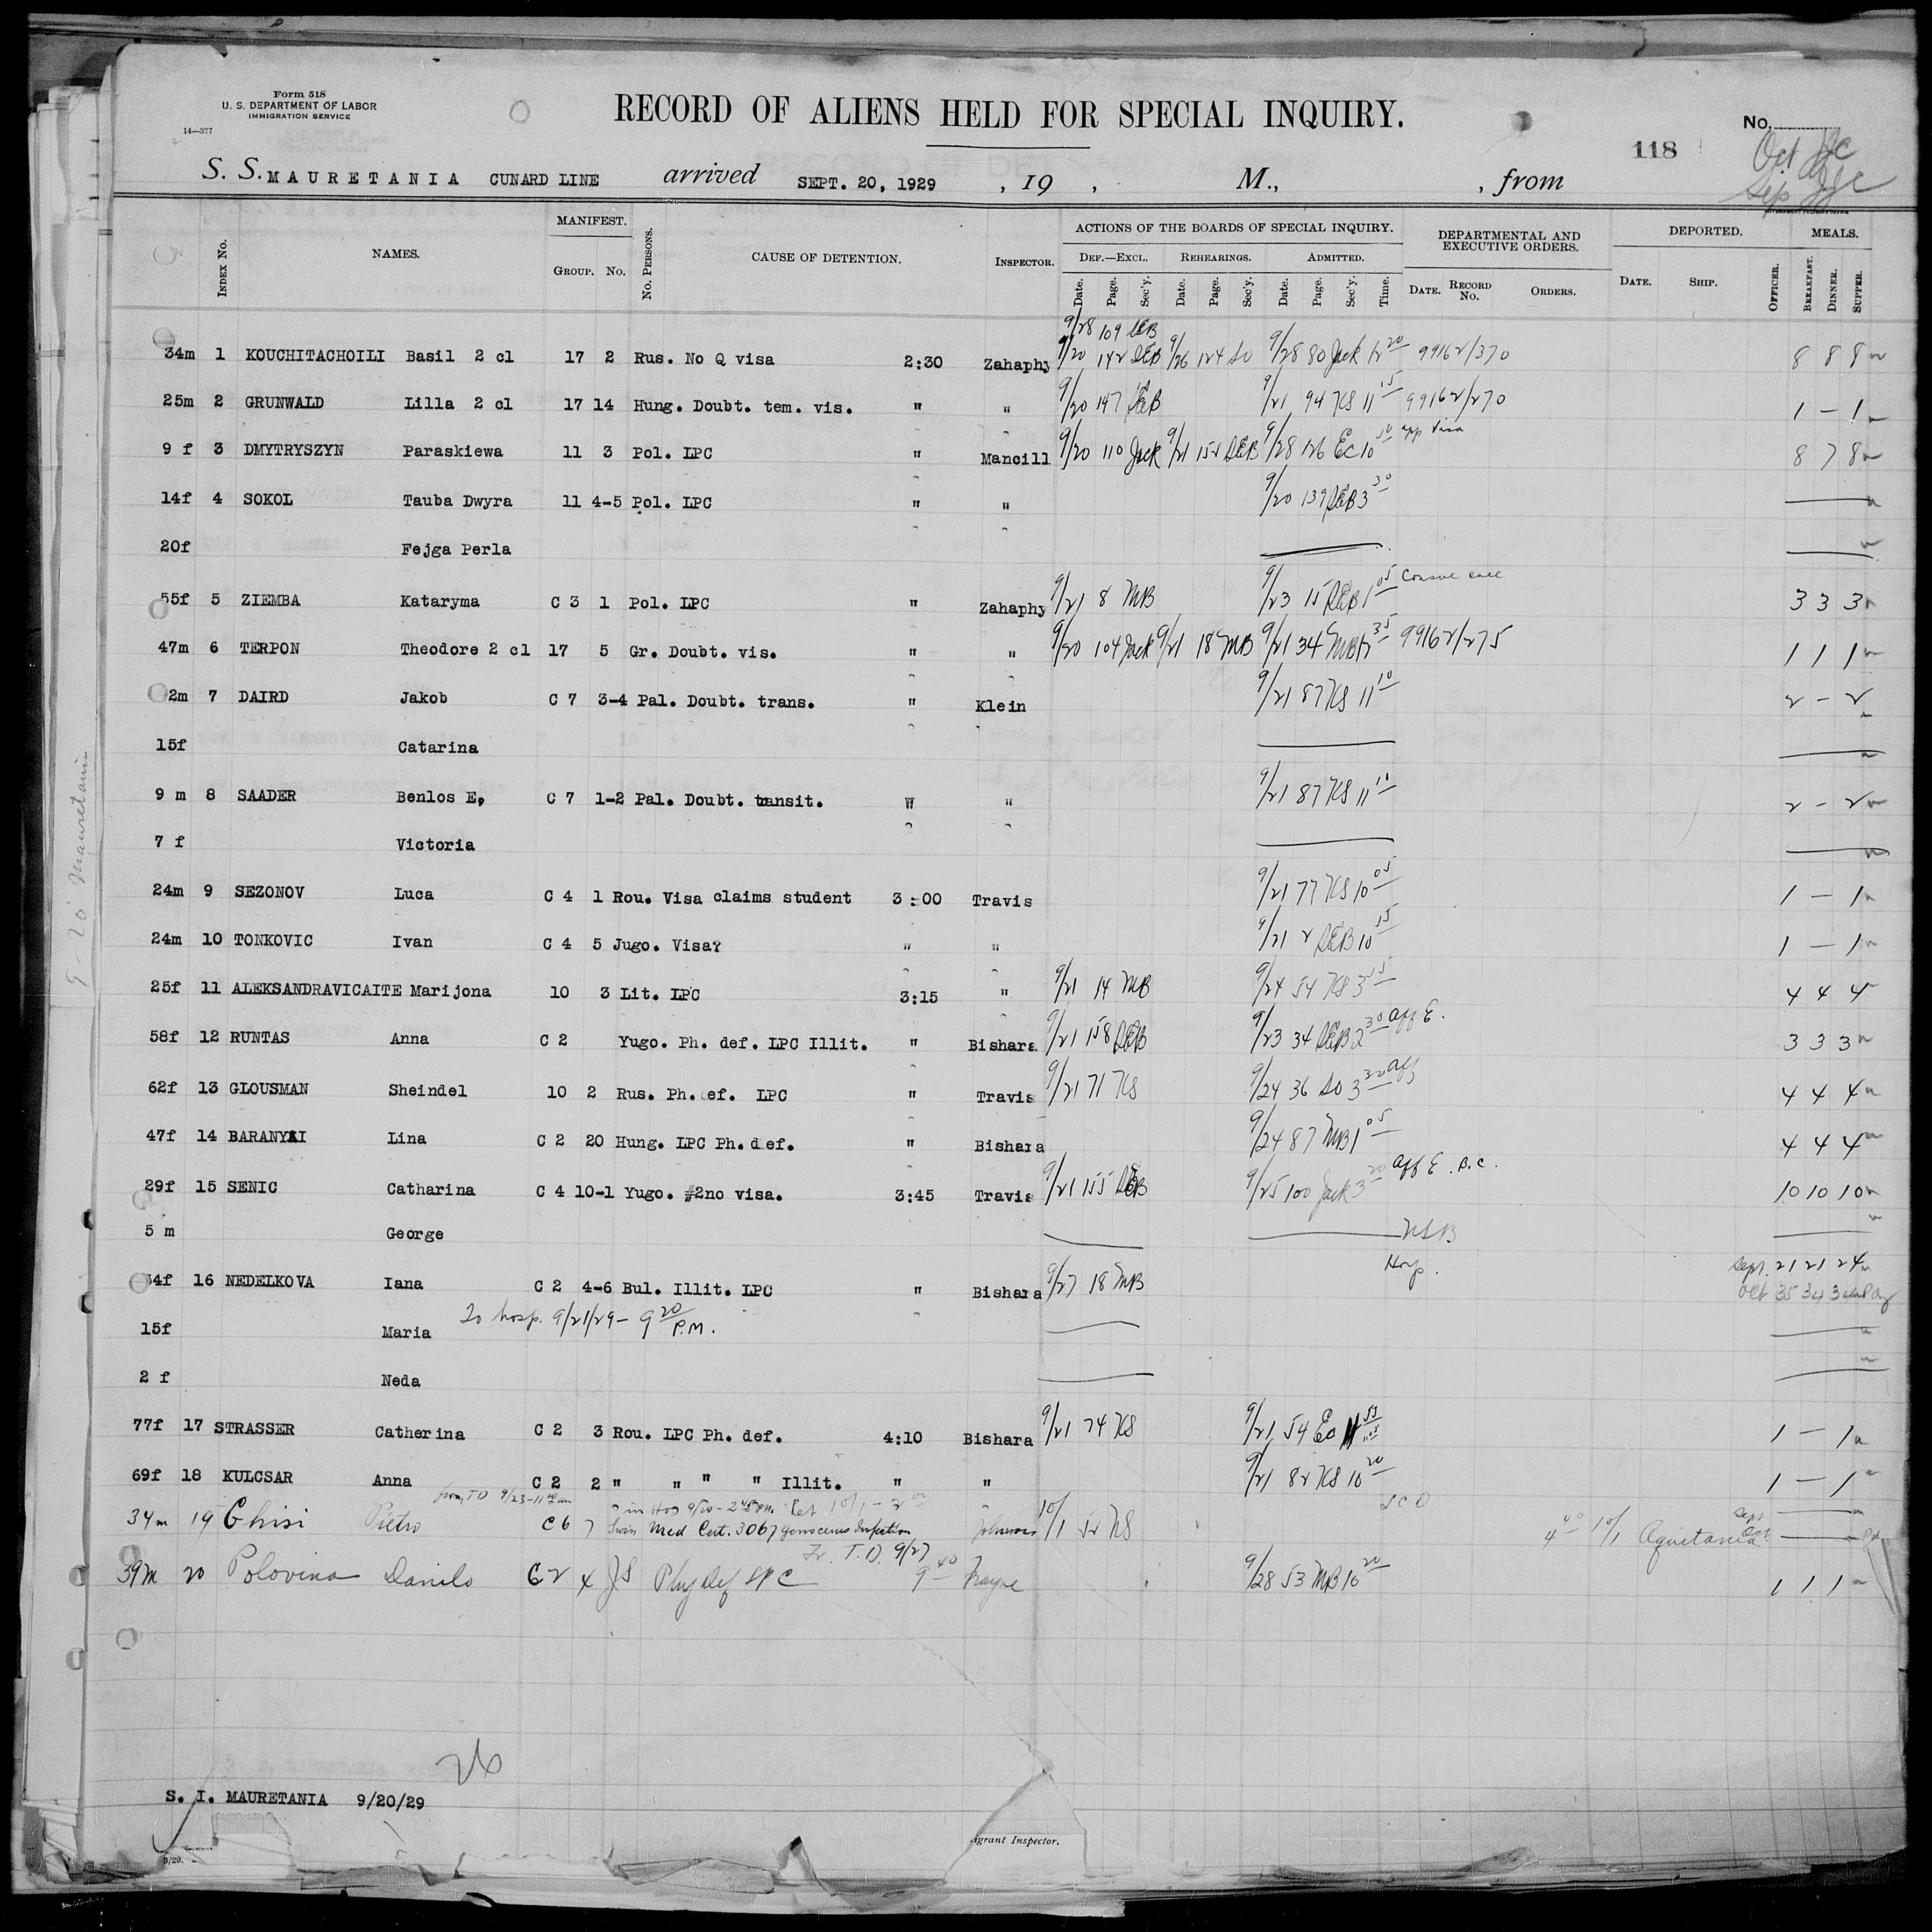 Form 518
U. S. DEPARTMENT OF LABOR
IMMIGRATION SERVICE
14—377
RECORD OF ALIENS HELD FOR SPECIAL INQUIRY.
No.
118
Oct
Sep
S. S. MAURETANIA CUNARD LINE arrived SEPT. 20, 1929 , 19 , M., , from
INDEX No. NAMES. MANIFEST. GROUP. No. No. PERSONS. CAUSE OF DETENTION. INSPECTOR. ACTIONS OF THE BOARDS OF SPECIAL INQUIRY. DEPARTMENTAL AND EXECUTIVE ORDERS. DEPORTED. MEALS.
DEF.—EXCL. REHEARINGS. ADMITTED.
Date. Page. Sec'y. Date. Page. Sec'y. Date. Page. Sec'y. Time. DATE. RECORD No. ORDERS. DATE. SHIP. OFFICER. BREAKFAST. DINNER. SUPPER.
9/28 109 DEB
34m 1 KOUCHITACHOILI Basil 2 cl 17 2 Rus. No Q visa 2:30 Zahaphy 9/20 142 DEB 9/26 124 SO 9/28 80 Jack 12 20 99162/370 8 8 8
25m 2 GRUNWALD Lilla 2 cl 17 14 Hung. Doubt. tem. vis. " " 9/20 147 DEB 9/21 94 KS 11 15 99162/270 1 — 1
9 f 3 DMYTRYSZYN Paraskiewa 11 3 Pol. LPC " Mancill 9/20 110 Jack 9/21 152 DEB 9/28 126 EC 10 50 app visa 8 7 8
14f 4 SOKOL Tauba Dwyra 11 4-5 Pol. LPC " " 9/20 139 DEB 3 30
20f Fejga Perla
55f 5 ZIEMBA Kataryma C 3 1 Pol. LPC " Zahaphy 9/21 8 MB 9/23 15 DEB 1 05 3 3 3
47m 6 TERPON Theodore 2 cl 17 5 Gr. Doubt. vis. " " 9/20 104 Jack 9/21 18 MB 9/21 34 MB 12 35 99162/275 1 1 1
2m 7 DAIRD Jakob C 7 3-4 Pal. Doubt. trans. " Klein 9/21 87 KS 11 10 2 – 2
15f Catarina
9 m 8 SAADER Benlos E, C 7 1-2 Pal. Doubt. transit. " " 9/21 87 KS 11 10 2 – 2
7 f Victoria
24m 9 SEZONOV Luca C 4 1 Rou. Visa claims student 3:00 Travis 9/21 77 KS 10 05 1 — 1
24m 10 TONKOVIC Ivan C 4 5 Jugo. Visa? " " 9/21 2 DEB 10 15 1 — 1
25f 11 ALEKSANDRAVICAITE Marijona 10 3 Lit. LPC 3:15 " 9/21 14 MB 9/24 54 KS 3 15 4 4 4
58f 12 RUNTAS Anna C 2 Yugo. Ph. def. LPC Illit. " Bishara 9/21 158 DEB 9/23 34 DEB 2 30 aff E. 3 3 3
62f 13 GLOUSMAN Sheindel 10 2 Rus. Ph. ef. LPC " Travis 9/21 71 KS 9/24 36 SO 3 30 aff 4 4 4
47f 14 BARANYAI Lina C 2 20 Hung. LPC Ph. def. " Bishara 9/24 87 MB 1 05 4 4 4
29f 15 SENIC Catharina C 4 10-1 Yugo. #2no visa. 3:45 Travis 9/21 155 DEB 9/25 100 Jack 3 20 aff E. B.C. 10 10 10
5 m George
34f 16 NEDELKOVA Iana C 2 4-6 Bul. Illit. LPC " Bishara 9/27 18 MB Hosp. Sept. 21 21 24
Oct 35 34 34
15f Maria To hosp. 9/21/29 – 9 20 P.M.
2 f Neda
77f 17 STRASSER Catherina C 2 3 Rou. LPC Ph. def. 4:10 Bishara 9/21 74 KS 9/21 54 EC 1 — 1
69f 18 KULCSAR Anna C 2 2 " " " " Illit. " " 9/21 82 KS 10 20 1 — 1
from T D 9/23 – 11 20 am in Hos 9/20 – 2 45 P.M. Ret. 10/1 – 2 00
34m 19 Ghisi Pietro C 6 7 Swis Med Cert. 3067 Johnson 10/1 52 KS 4 40 10/1 Aquitania Sept Oct
Fr. T. D. 9/27
39m 20 Polovina Danilo C 2 4 JS Phy Def LPC 9 40 Frayne 9/28 53 MB 10 20 1 1 1
26
S. I. MAURETANIA 9/20/29
igrant Inspector.
3/29.
9 - 20 Mauretania